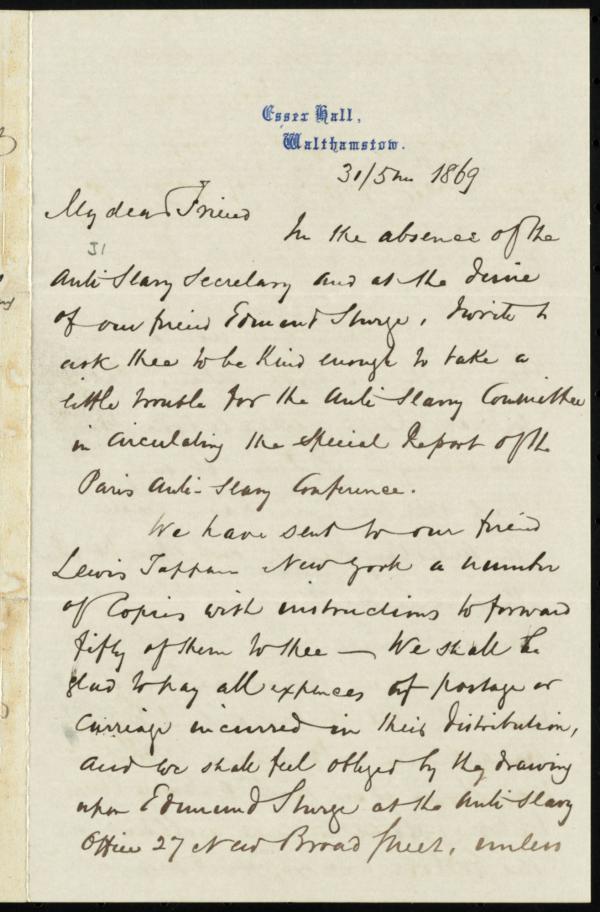 Essex Hall,
Walthamstow.
31/5m 1869
My dear Friend
In the absence of the
Anti Slavy Secretary and at the desire
of our friend Edmund Sturge, I write to
ask thee to be Kind enough to take a
little trouble for the Anti Slavry Committee
in circulating the special Report of the
Paris Anti-Slavery Conference.
We have sent to our friend
Lewis Tappan New York a number
of Copies with instructions to forward
fifty of them to thee — We shall be
glad to pay all expences of postage or
carriage incurred in their distribution,
and we shall feel obliged by thy drawing
upon Edmund Sturge at the Anti Slavery
Office 27 New Broad Street, unless